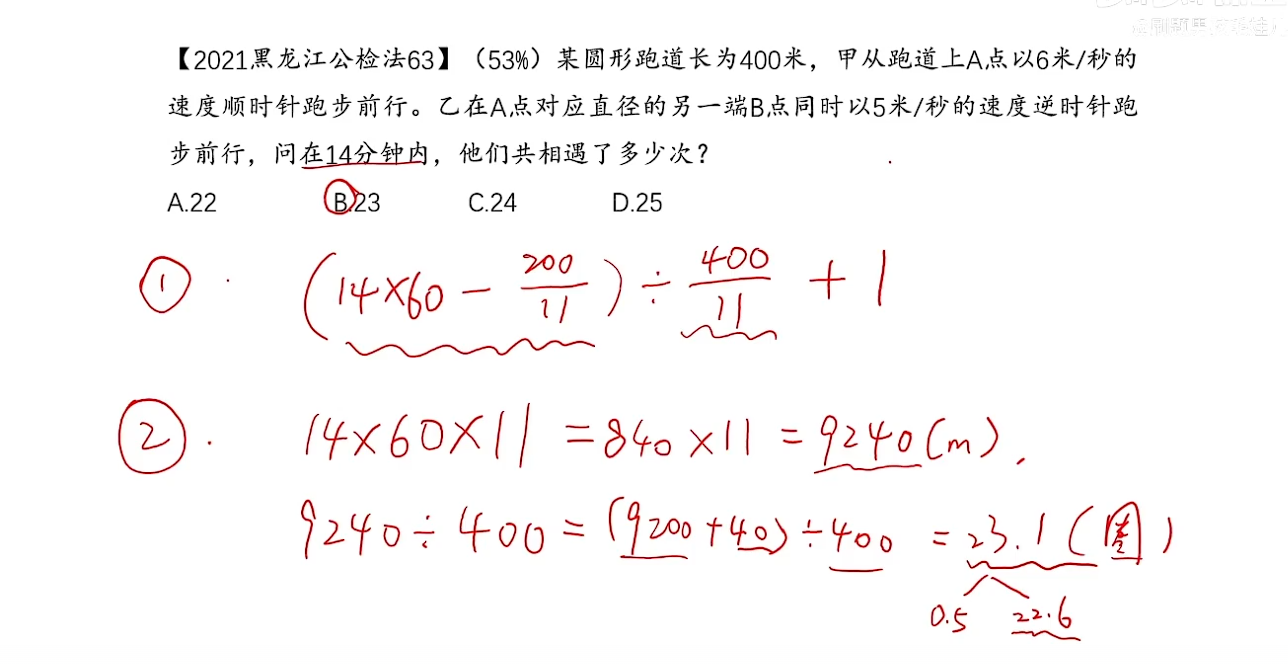 【2021黑龙江公检法63】（53%）某圆形跑道长为400米，甲从跑道上A点以6米/秒的
速度顺时针跑步前行。乙在A点对应直径的另一端B点同时以5米/秒的速度逆时针跑
步前行，问在14分钟内，他们共相遇了多少次？
A.22 B.23 C.24 D.25
① (14×60 - 200/11) ÷ 400/11 + 1
② . 14×60×11 = 840×11 = 9240(m).
9240÷400 = (9200+40)÷400 = 23.1(圈)
0.5 22.6